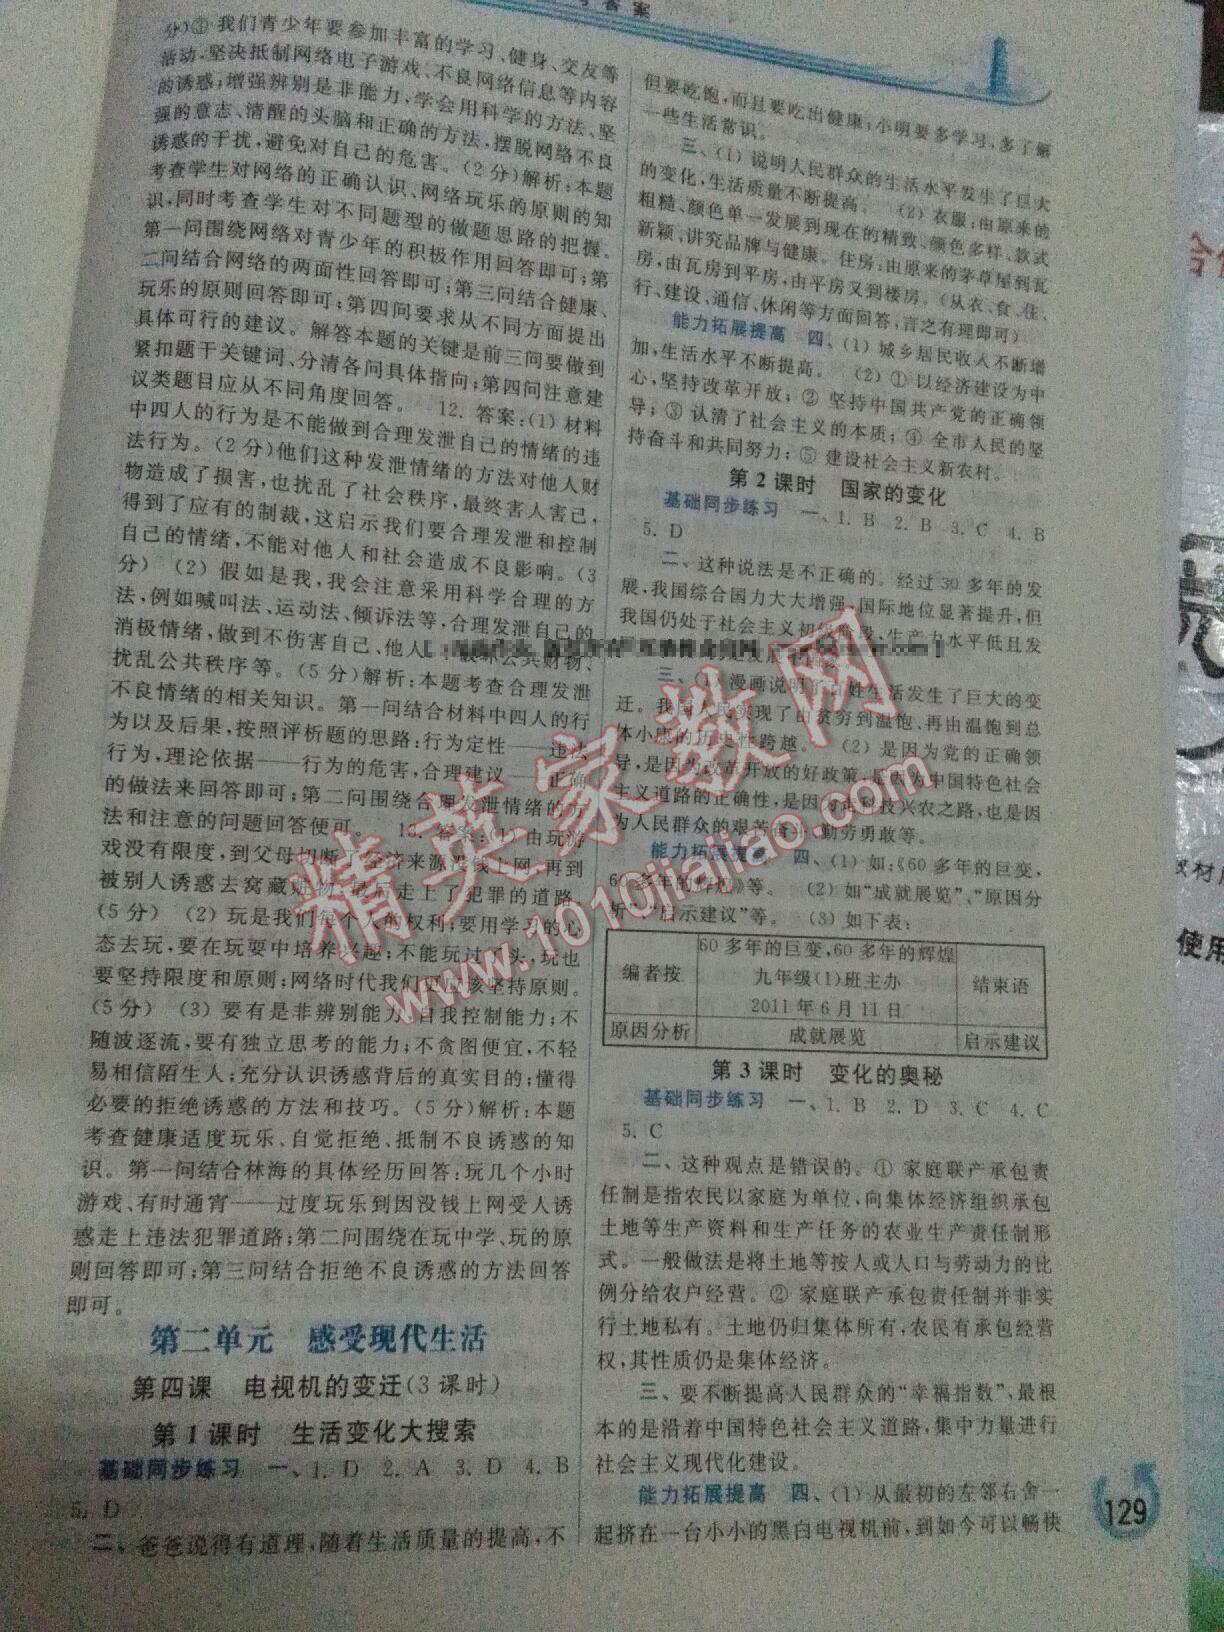 答案
分)③ 我们青少年要参加丰富的学习、健身、交友等
活动,坚决抵制网络电子游戏、不良网络信息等内容
的诱惑;增强辨别是非能力,学会用科学的方法、坚
强的意志、清醒的头脑和正确的方法,摆脱网络不良
诱惑的干扰,避免对自己的危害。(2分)解析:本题
考查学生对网络的正确认识、网络玩乐的原则的知
识,同时考查学生对不同题型的做题思路的把握。
第一问围绕网络对青少年的积极作用回答即可;第
二问结合网络的两面性回答即可;第三问结合健康、
玩乐的原则回答即可;第四问要求从不同方面提出
具体可行的建议。解答本题的关键是前三问要做到
紧扣题干关键词、分清各问具体指向;第四问注意建
议类题目应从不同角度回答。 12. 答案:(1) 材料
中四人的行为是不能做到合理发泄自己的情绪的违
法行为。(2分)他们这种发泄情绪的方法对他人财
物造成了损害,也扰乱了社会秩序,最终害人害己,
得到了应有的制裁,这启示我们要合理发泄和控制
自己的情绪,不能对他人和社会造成不良影响。(3
分) (2) 假如是我,我会注意采用科学合理的方
法,例如喊叫法、运动法、倾诉法等,合理发泄自己的
消极情绪,做到不伤害自己、他人、破坏公共财物、
扰乱公共秩序等。(5分)解析:本题考查合理发泄
不良情绪的相关知识。第一问结合材料中四人的行
为以及后果,按照评析题的思路:行为定性——违法
行为,理论依据——行为的危害,合理建议——正确
的做法来回答即可;第二问围绕合理发泄情绪的方
法和注意的问题回答便可。 13. 答案:(1) 由玩游
戏没有限度,到父母切断了经济来源没钱上网,再到
被别人诱惑去窝藏赃物,最后走上了犯罪的道路。
(5分) (2) 玩是我们每个人的权利;要用学习的心
态去玩,要在玩耍中培养兴趣;不能玩过了头,玩也
要坚持限度和原则;网络时代我们更应该坚持原则。
(5分) (3) 要有是非辨别能力、自我控制能力;不
随波逐流,要有独立思考的能力;不贪图便宜,不轻
易相信陌生人;充分认识诱惑背后的真实目的;懂得
必要的拒绝诱惑的方法和技巧。(5分)解析:本题
考查健康适度玩乐、自觉拒绝、抵制不良诱惑的知
识。第一问结合林海的具体经历回答:玩几个小时
游戏、有时通宵——过度玩乐到因没钱上网受人诱
惑走上违法犯罪道路;第二问围绕在玩中学、玩的原
则回答即可;第三问结合拒绝不良诱惑的方法回答
即可。
第二单元 感受现代生活
第四课 电视机的变迁(3课时)
第1课时 生活变化大搜索
基础同步练习 一、1. D 2. A 3. D 4. B
5. D
二、爸爸说得有道理,随着生活质量的提高,不
但要吃饱,而且要吃出健康;小明要多学习,多了解
一些生活常识。
三、(1) 说明人民群众的生活水平发生了巨大
的变化,生活质量不断提高。 (2) 衣服:由原来的
粗糙、颜色单一发展到现在的精致、颜色多样、款式
新颖、讲究品牌与健康。住房:由原来的茅草屋到瓦
房,由瓦房到平房,由平房又到楼房。(从衣、食、住、
行、建设、通信、休闲等方面回答,言之有理即可)
能力拓展提高 四、(1) 城乡居民收入不断增
加,生活水平不断提高。 (2) ① 以经济建设为中
心,坚持改革开放;② 坚持中国共产党的正确领
导;③ 认清了社会主义的本质;④ 全市人民的坚
持奋斗和共同努力;⑤ 建设社会主义新农村。
第2课时 国家的变化
基础同步练习 一、1. B 2. B 3. C 4. B
5. D
二、这种说法是不正确的。经过30多年的发
展,我国综合国力大大增强,国际地位显著提升,但
我国仍处于社会主义初级阶段,生产力水平低且发
三、(1) 漫画说明了百姓生活发生了巨大的变
迁。我国人民实现了由贫穷到温饱、再由温饱到总
体小康的历史性跨越。 (2) 是因为党的正确领
导,是因为改革开放的好政策,是因为中国特色社会
主义道路的正确性,是因为走科技兴农之路,也是因
为人民群众的艰苦奋斗、勤劳勇敢等。
能力拓展提高 四、(1) 如:《60多年的巨变,
60多年的辉煌》等。 (2) 如“成就展览”、“原因分
析”、“启示建议”等。 (3) 如下表:
编者按 60多年的巨变,60多年的辉煌 九年级(1)班主办 2011年6月11日 结束语
原因分析 成就展览 启示建议
第3课时 变化的奥秘
基础同步练习 一、1. B 2. D 3. C 4. C
5. C
二、这种观点是错误的。① 家庭联产承包责
任制是指农民以家庭为单位,向集体经济组织承包
土地等生产资料和生产任务的农业生产责任制形
式。一般做法是将土地等按人或人口与劳动力的比
例分给农户经营。② 家庭联产承包责任制并非实
行土地私有。土地仍归集体所有,农民有承包经营
权,其性质仍是集体经济。
三、要不断提高人民群众的“幸福指数”,最根
本的是沿着中国特色社会主义道路,集中力量进行
社会主义现代化建设。
能力拓展提高 四、(1) 从最初的左邻右舍一
起挤在一台小小的黑白电视机前,到如今可以畅快
129
精英家教网
www.1010jiajiao.com
使用